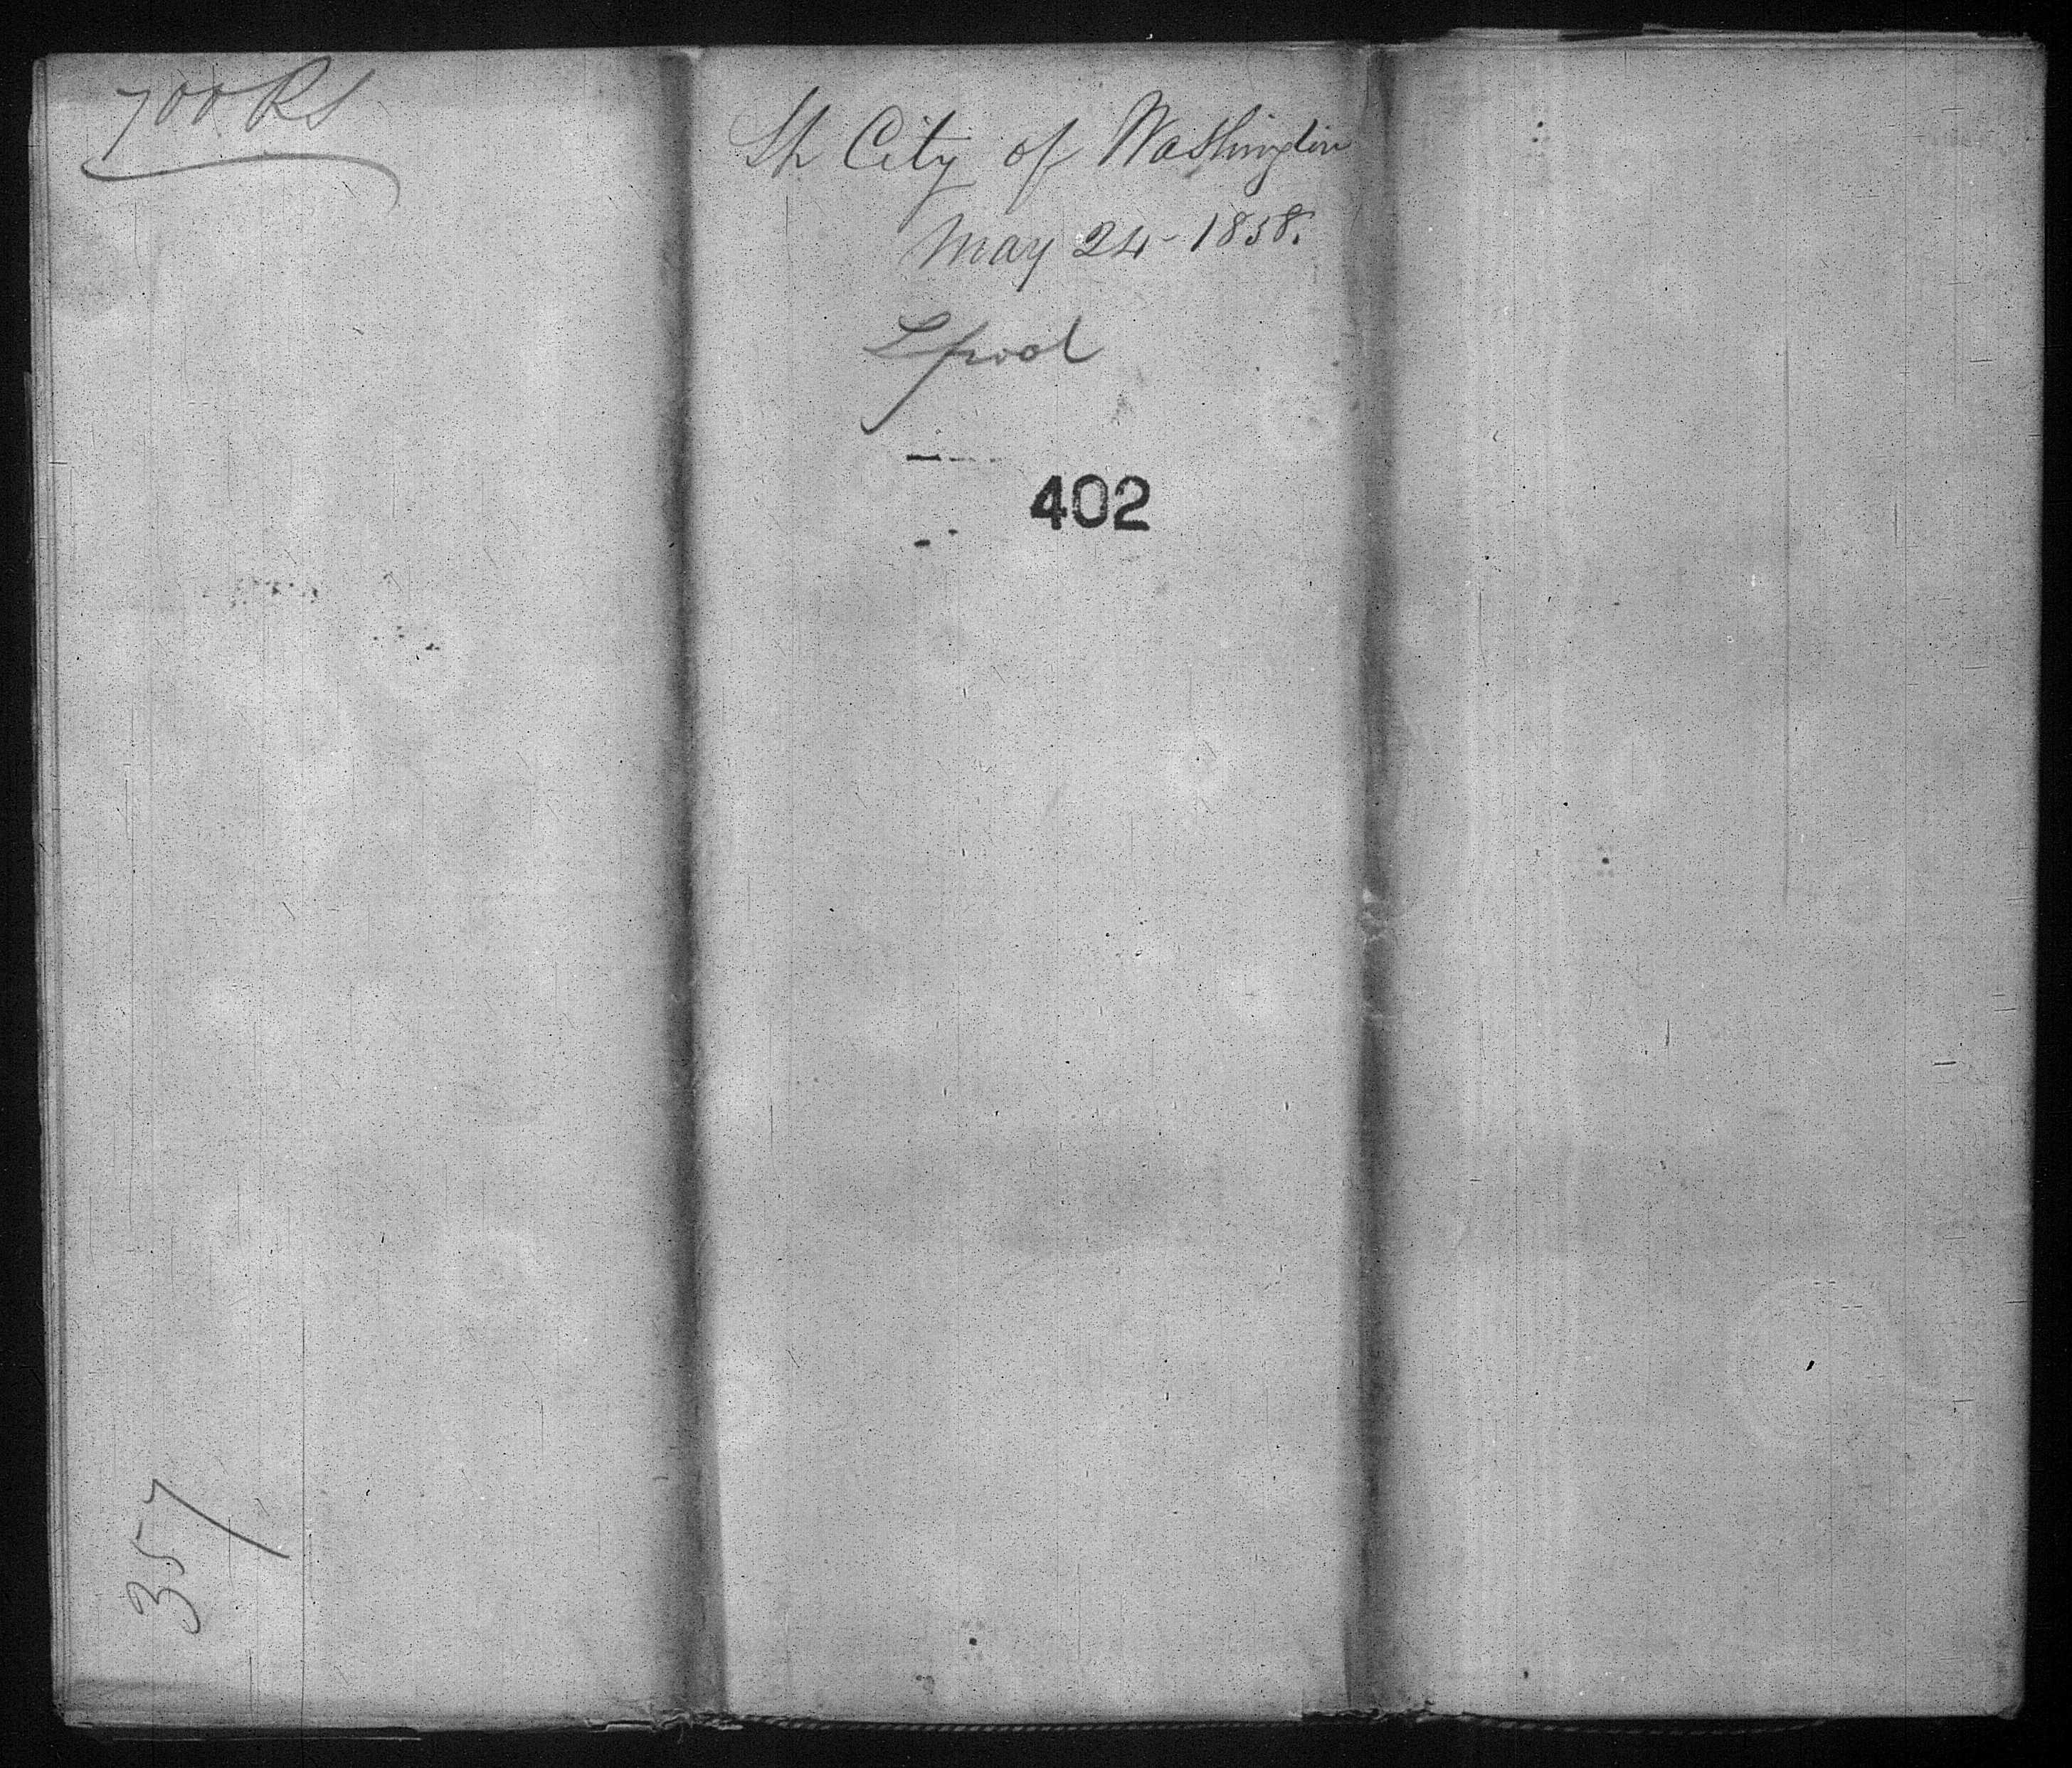 700 Rs
Sh City of Washington
May 24 - 1858.
Lpool
402
357